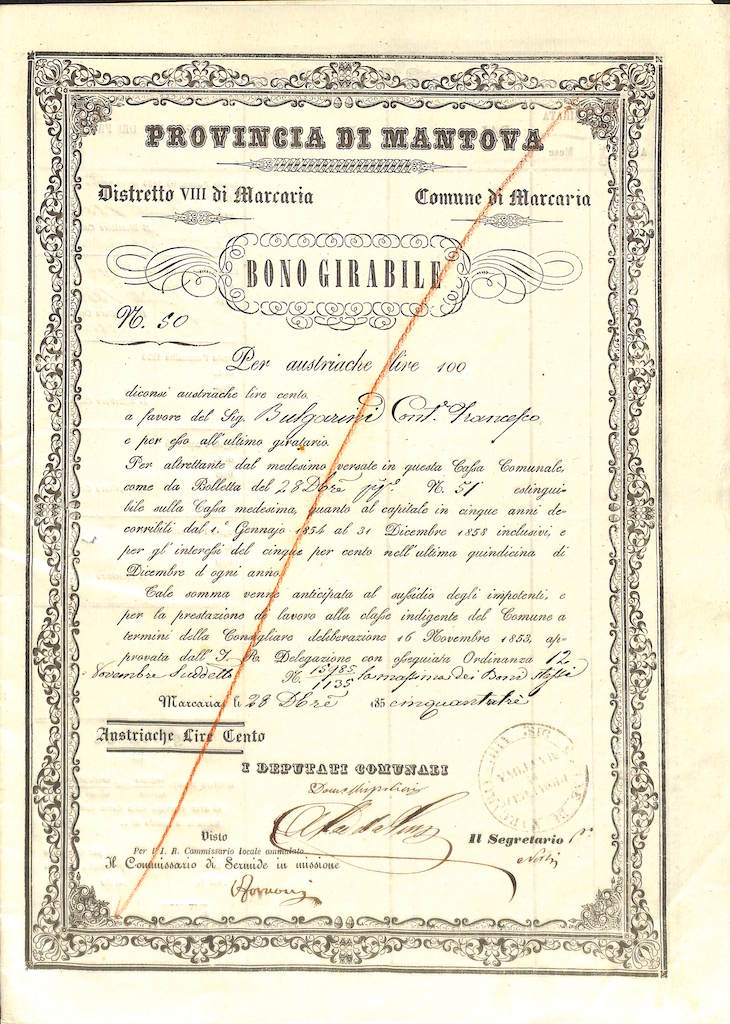 PROVINCIA DI MANTOVA
Distretto VIII di Marcaria
Comune di Marcaria
BONO GIRABILE
N. 50
Per austriache lire 100
diconsi austriache lire cento
a favore del Sig. Bulgarini Cont.e Francesco
e per esso all'ultimo giratario.
Per altrettante dal medesimo versate in questa Cassa Comunale,
come da Bolletta del 28 Dbrẽ N. 51 estingui-
bile sulla Cassa medesima, quanto al capitale in cinque anni de-
corribili dal 1.º Gennajo 1854 al 31 Dicembre 1858 inclusivi, e
per gl'interessi del cinque per cento nell'ultima quindicina di
Dicembre d'ogni anno.
Tale somma venne anticipata al sussidio degli impotenti, e
per la prestazione de lavoro alla classe indigente del Comune a
termini della Consigliare deliberazione 16 Novembre 1853, ap-
provata dall'I. R. Delegazione con ossequiata Ordinanza 12
Novembre suddetto N. 15485/1135 la massima dei Boni stessi
Marcaria li 28 Dbrẽ 185 cinquantatrè
Austriache Lire Cento
I DEPUTATI COMUNALI
Visto
Per l'I. R. Commissario locale ammalato
Il Commissario di Sermide in missione
Il Segretario